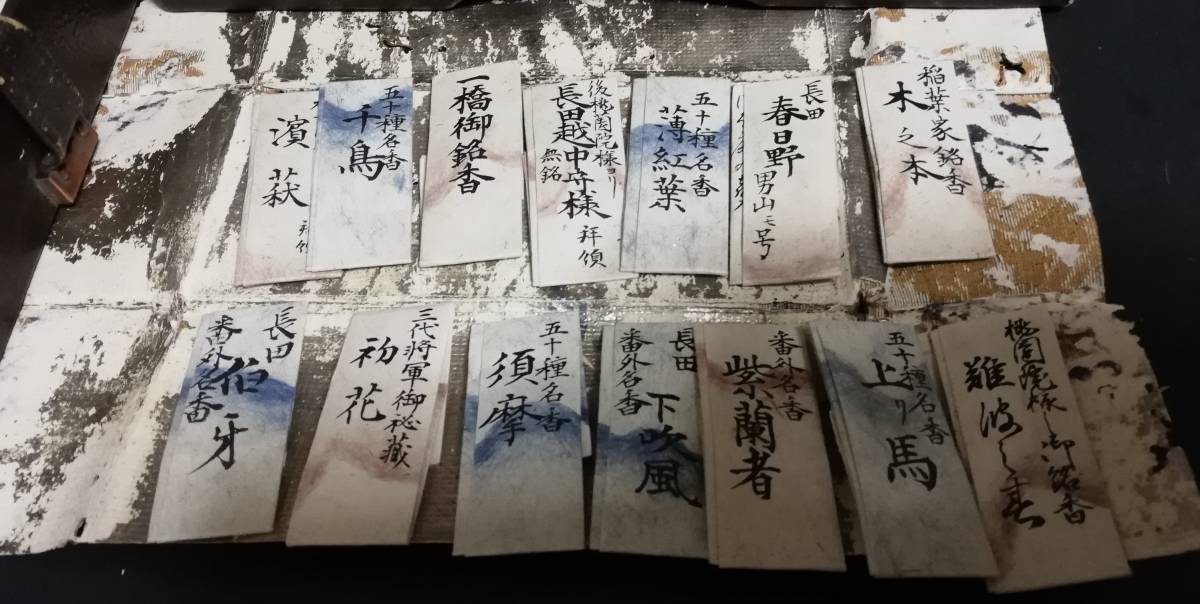 稲葉家銘香
木之本
長田
春日野
男山モ号
五十種名香
薄紅葉
後桃園院様ヨリ
長田越中守様
拝領
無銘
一橋御銘香
五十種名香
千鳥
濱萩
拝領
桃園院様御銘香
難波之春
五十種名香
上り馬
番外名香
紫蘭者
長田
番外名香
下吹風
五十種名香
須摩
三代将軍御秘藏
初花
長田
番外名香
伯牙